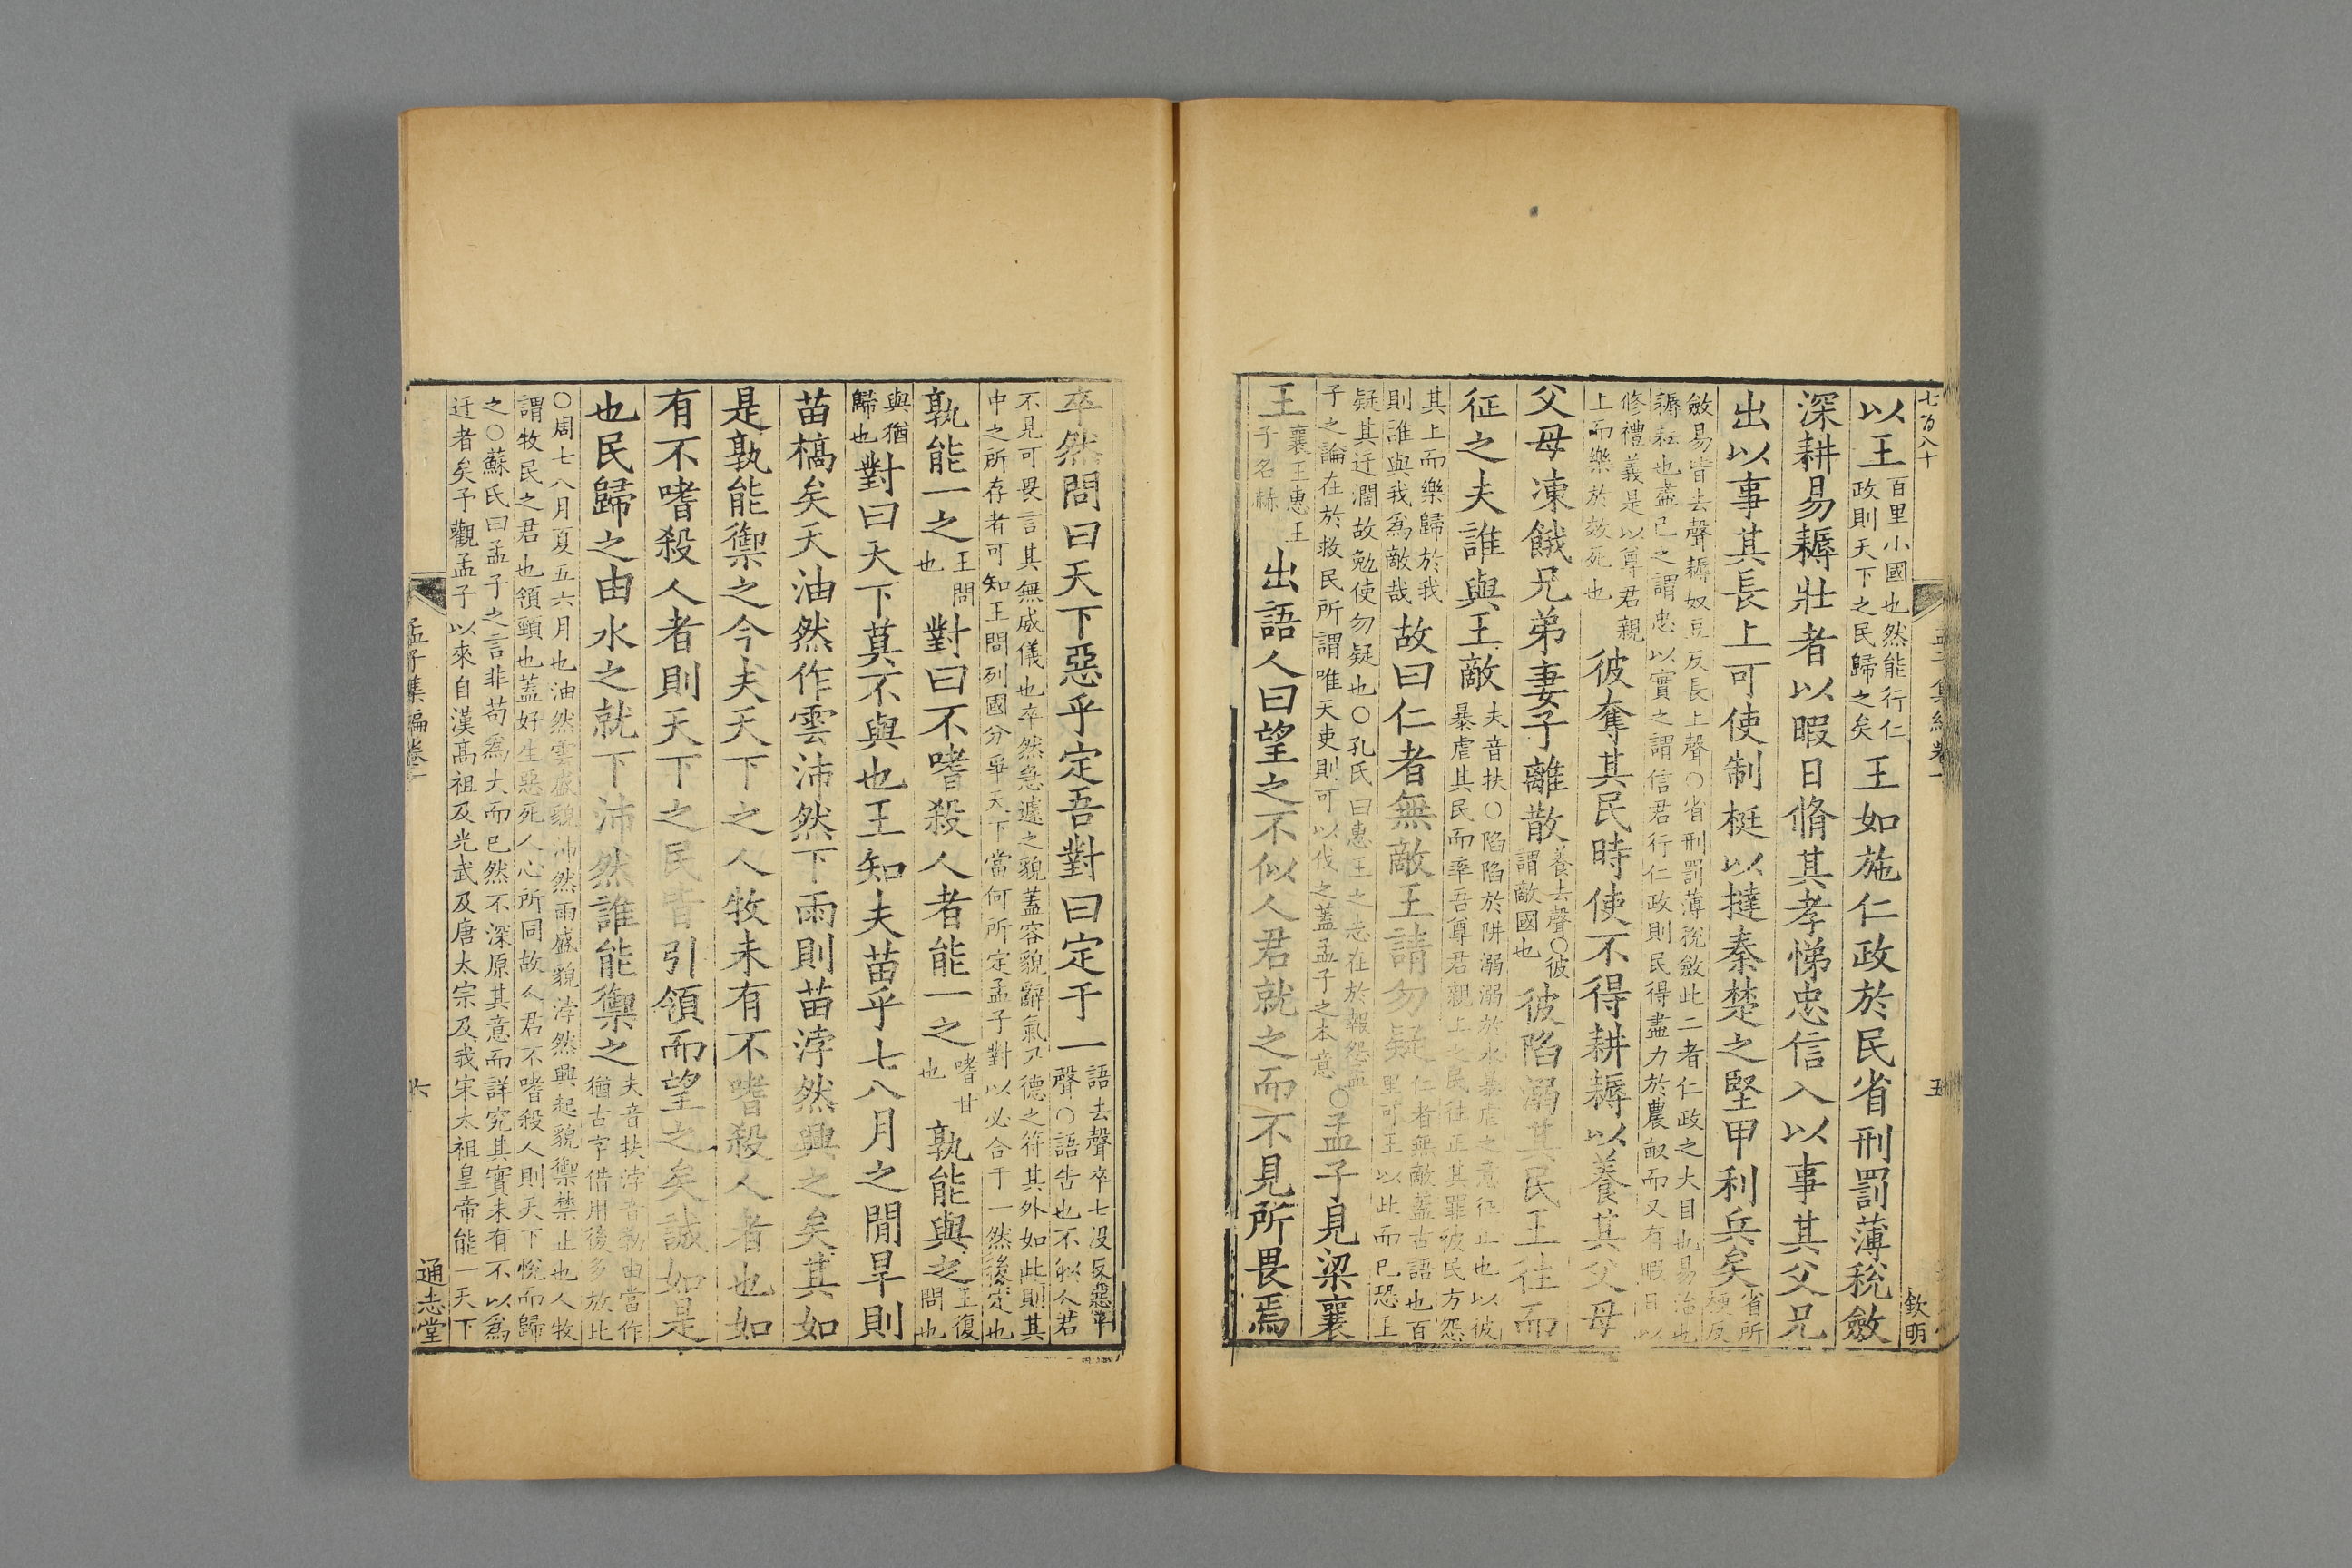 七百八十
孟子集編卷一
五
欽明
以王百里小國也然能行仁政則天下之民歸之矣王如施仁政於民省刑罰薄稅斂
深耕易耨壯者以暇日脩其孝悌忠信入以事其父兄
出以事其長上可使制梃以撻秦楚之堅甲利兵矣省所梗反
斂易皆去聲耨奴豆反長上聲○省刑罰薄稅斂此二者仁政之大目也易治也
耨耘也盡己之謂忠以實之謂信君行仁政則民得盡力於農畝而又有暇日以
修禮義是以尊君親上而樂於效死也彼奪其民時使不得耕耨以養其父母
父母凍餓兄弟妻子離散養去聲○彼謂敵國也彼陷溺其民王往而
征之夫誰與王敵夫音扶○陷陷於阱溺溺於水暴虐之意征正也以彼暴虐其民而率吾尊君親上之民往正其罪彼民方怨
其上而樂歸於我則誰與我為敵哉故曰仁者無敵王請勿疑仁者無敵蓋古語也百里可王以此而已恐王
疑其迂濶故勉使勿疑也○孔氏曰惠王之志在於報怨孟子之論在於救民所謂唯天吏則可以伐之蓋孟子之本意○孟子見梁襄
王襄王惠王子名赫出語人曰望之不似人君就之而不見所畏焉
卒然問曰天下惡乎定吾對曰定于一語去聲卒七沒反惡平聲○語告也不似人君
不見可畏言其無威儀也卒然急遽之貌蓋容貌辭氣乃德之符其外如此則其
中之所存者可知王問列國分爭天下當何所定孟子對以必合于一然後定也
孰能一之王問也對曰不嗜殺人者能一之嗜甘也孰能與之王復問也
與猶歸也對曰天下莫不與也王知夫苗乎七八月之閒旱則
苗槁矣天油然作雲沛然下雨則苗浡然興之矣其如
是孰能禦之今夫天下之人牧未有不嗜殺人者也如
有不嗜殺人者則天下之民皆引領而望之矣誠如是
也民歸之由水之就下沛然誰能禦之夫音扶浡音勃由當作猶古字借用後多放此
○周七八月夏五六月也油然雲盛貌沛然雨盛貌浡然興起貌禦禁止也人牧
謂牧民之君也領頸也蓋好生惡死人心所同故人君不嗜殺人則天下悅而歸
之○蘇氏曰孟子之言非苟為大而已然不深原其意而詳究其實未有不以為
迂者矣予觀孟子以來自漢高祖及光武及唐太宗及我宋太祖皇帝能一天下
孟子集編卷一
六
通志堂